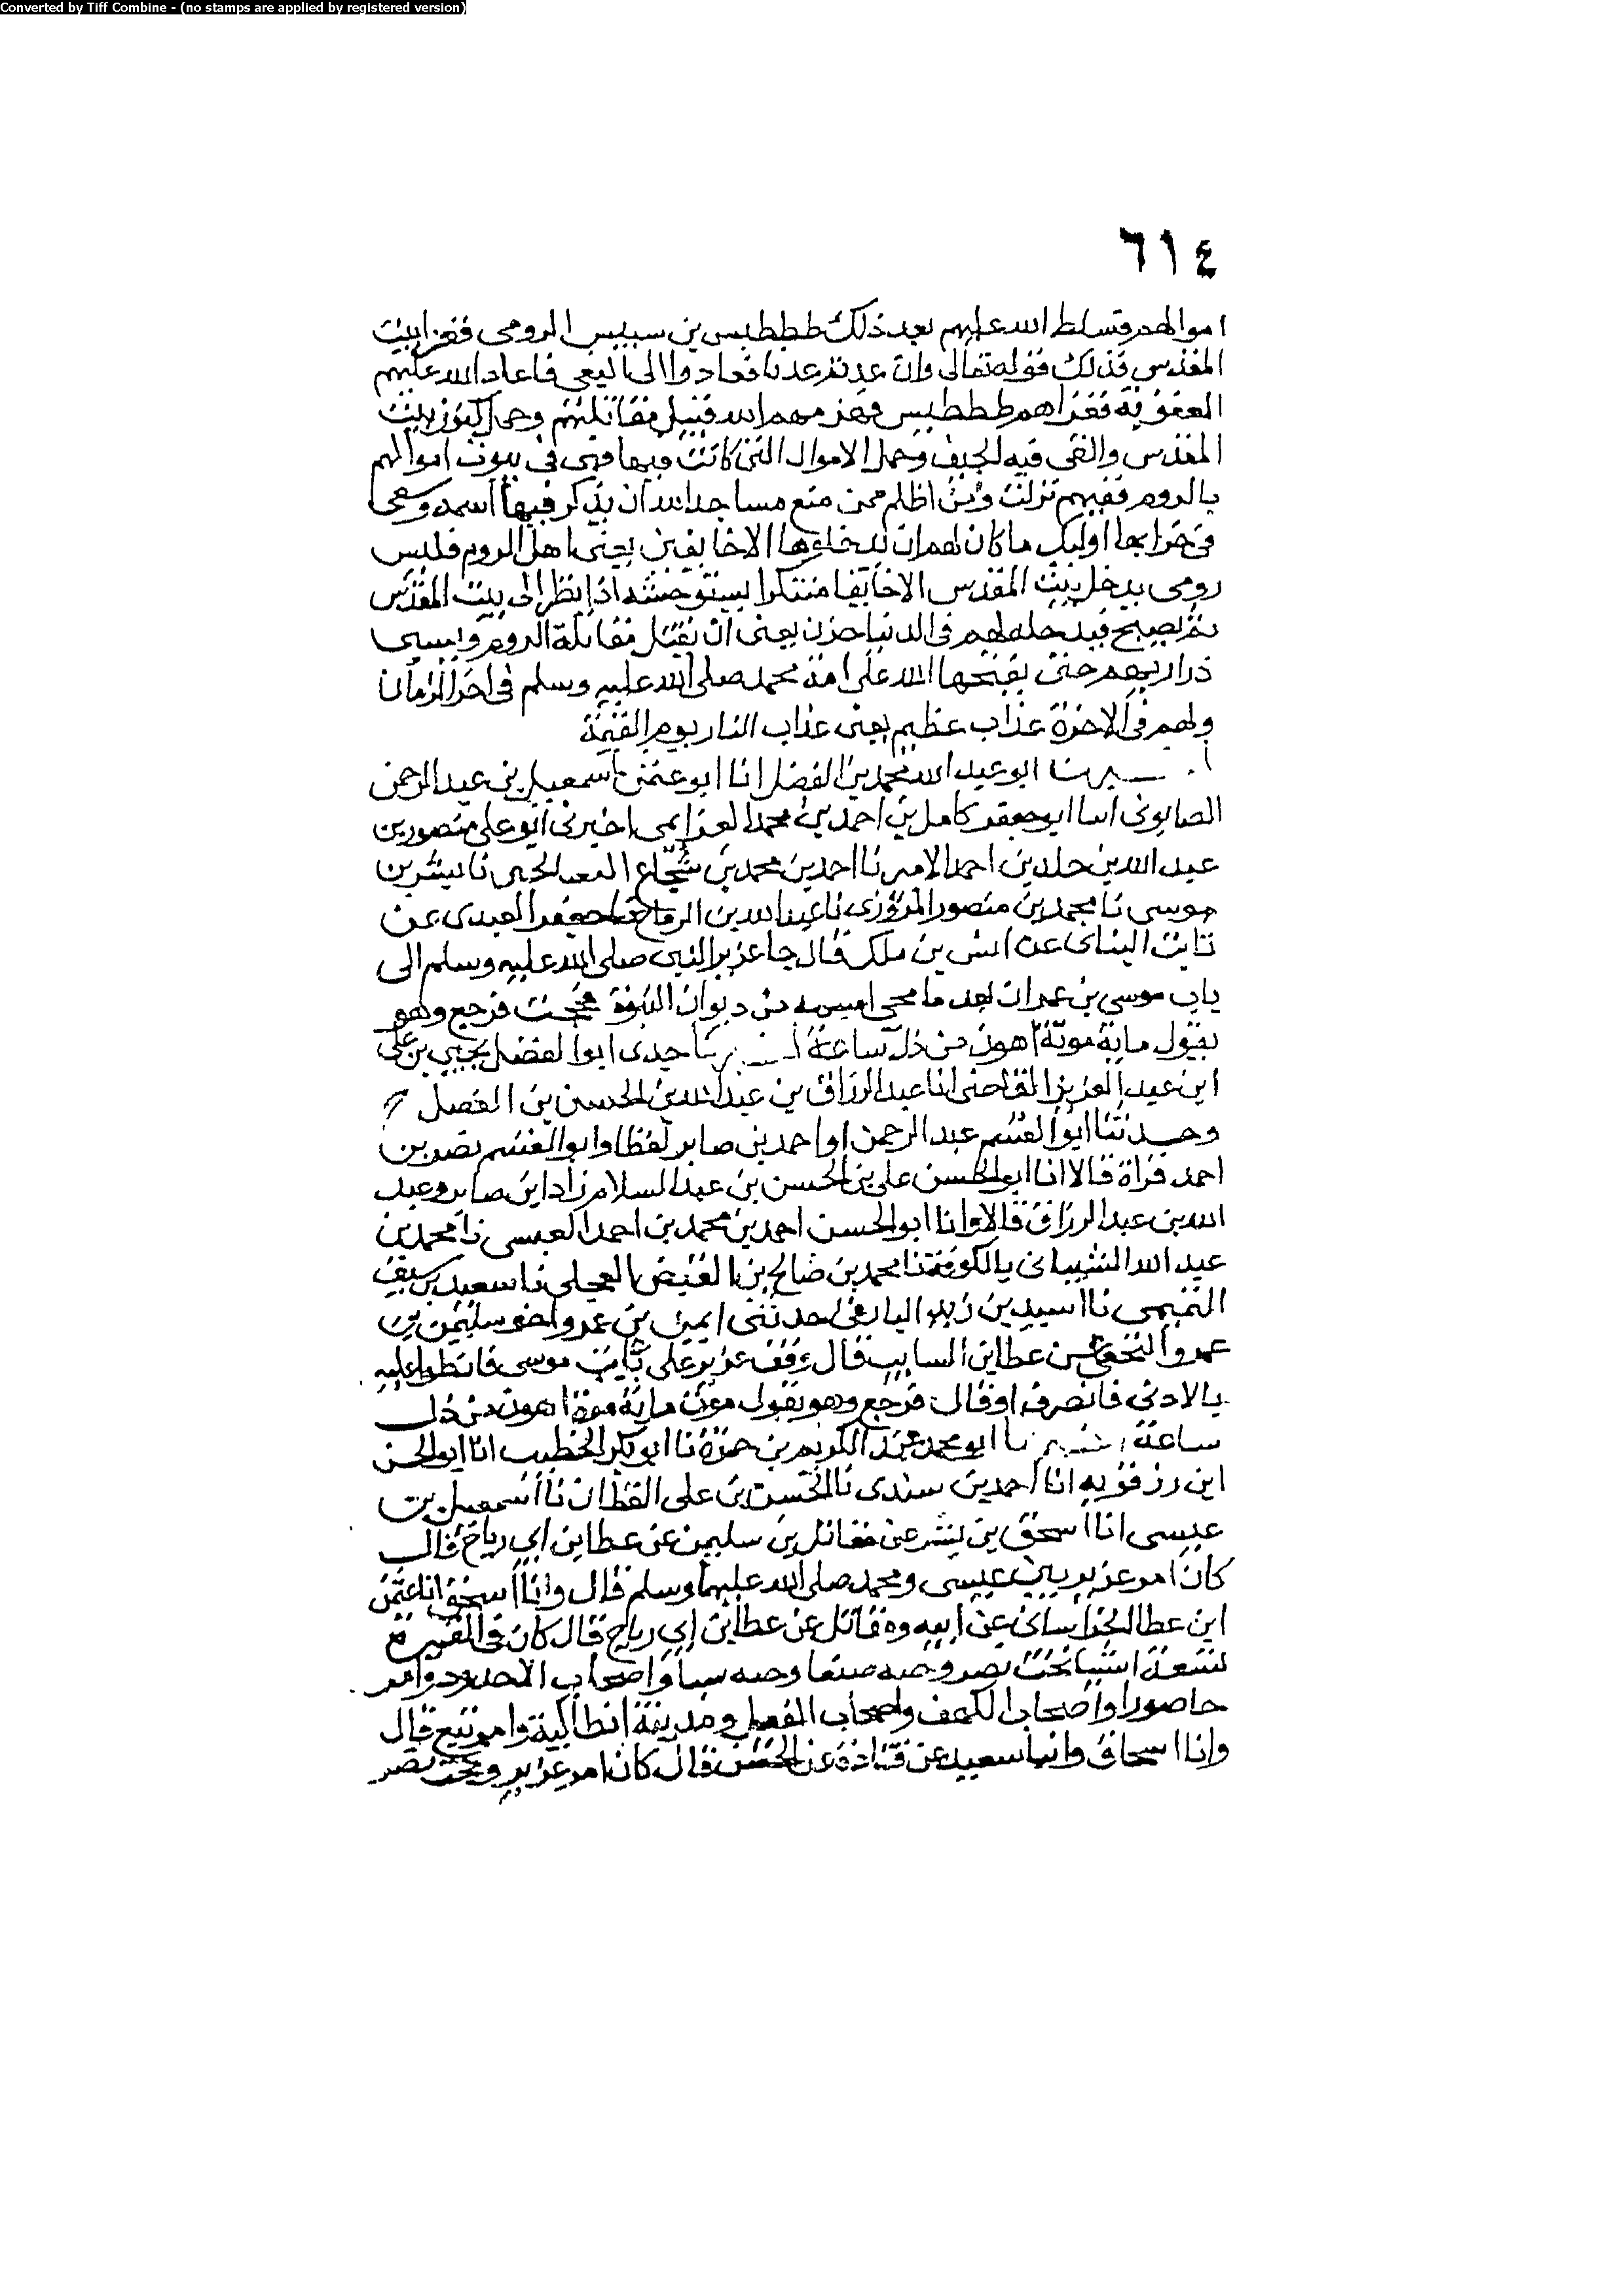 Converted by Tiff Combine - (no stamps are applied by registered version)
٦١٤
اموالهم فسلط الله عليهم بعد ذلك ططيطس بن سبيس الرومى فغزا بيت
المقدس فذلك قوله تعالى وان عدتم عدنا فعادوا الى البغى فاعاد الله عليهم
العقوبة فغزاهم ططيطس فهزمهم الله فقتل مقاتلتهم وحمل كنوز بيت
المقدس والقى فيه الجيف وحمل الاموال التى كانت فيها فهى فى بيوت اموالهم
بالروم ففيهم نزلت ومن اظلم ممن منع مساجد الله ان يذكر فيها اسمه وسعى
فى خرابها اوليك ما كان لهم ان يدخلوها الا خايفين يعنى اهل الروم فليس
رومى يدخل بيت المقدس الا خايفا متنكرا يستوحشه اذا نظر الى بيت المقدس
ثم يصيح فيدخله لهم فى الدنيا خزى يعنى ان نقتل مقاتلة الروم ويسبى
ذراريهم حتى يفتحها الله على امة محمد صلى الله عليه وسلم فى اخر الزمان
ولهم فى الاخرة عذاب عظيم يعنى عذاب النار يوم القيمة
اخبرنا ابو عبد الله محمد بن الفضل انا ابو عثمن اسمعيل بن عبد الرحمن
الصابونى انبا ابو جعفر كامل بن احمد بن محمد العزايمى اخبرنى ابو على منصور بن
عبد الله بن خلد بن احمد نا احمد بن محمد بن شجاع نا بشر بن
موسى نا محمد بن منصور المروزى نا عبد الله بن نا جعفر العبدى عن
ثابت البنانى عن انس بن ملك قال جا عزير النبى صلى الله عليه وسلم الى
باب موسى بن عمران بعد ما محى اسمه من ديوان النبوة فحجب فرجع وهو
يقول ماية موتة اهون من ذل ساعة اخبرنا جدى ابو الفضل يحيى بن على
ابن عبد العزيز القاضى انا عبد الرزاق بن عبد الله بن الحسن بن الفضل ح
وحدثنا ابو القسم عبد الرحمن بن احمد بن صابر لفظا وابو القسم نصر بن
احمد قراة قالا انا ابو الحسن على بن الحسن بن عبد السلام زاد ابن صابر وعبد
الله بن عبد الرزاق قالا وانا ابو الحسن احمد بن محمد بن احمد العبسى نا محمد بن
عبد الله الشيبانى بالكوفة نا محمد بن صالح بن الفيض العجلى نا سعيد بن سيف
التميمى نا اسيد بن زيد حدثنى ايمن بن عمرو اخو سليمن بن
عمرو النخعى عن عطا بن السايب قال وقف عزير على باب موسى
بالاذن فانصرف او قال فرجع وهو يقول موت ماية موتة اهون من ذل
ساعة اخبرنا ابو محمد عبد الكريم بن حمزة نا ابو بكر الخطيب انا ابو الحسن
ابن رزقويه انا احمد بن سندى نا الحسن بن على القطان نا اسمعيل بن
عيسى انا اسحق بن بشر عن مقاتل بن سليمن عن عطا بن ابى رباح قال
كان امر عزير بين عيسى ومحمد صلى الله عليهما وسلم قال وانا اسحق انا عثمن
ابن عطا الخراسانى عن ابيه ومقاتل عن عطا بن ابى رباح قال كان فى الفترة
تسعة اشيا بخت نصر وجنة صنعا وجنة سبا واصحاب الاخدود وامر
حاصورا واصحاب الكهف واصحاب الفيل ومدينة انطاكية وامر تبع قال
وانا اسحاق وانبا سعيد عن قتادة عن الحسن قال كان امر عزير وبخت نصر